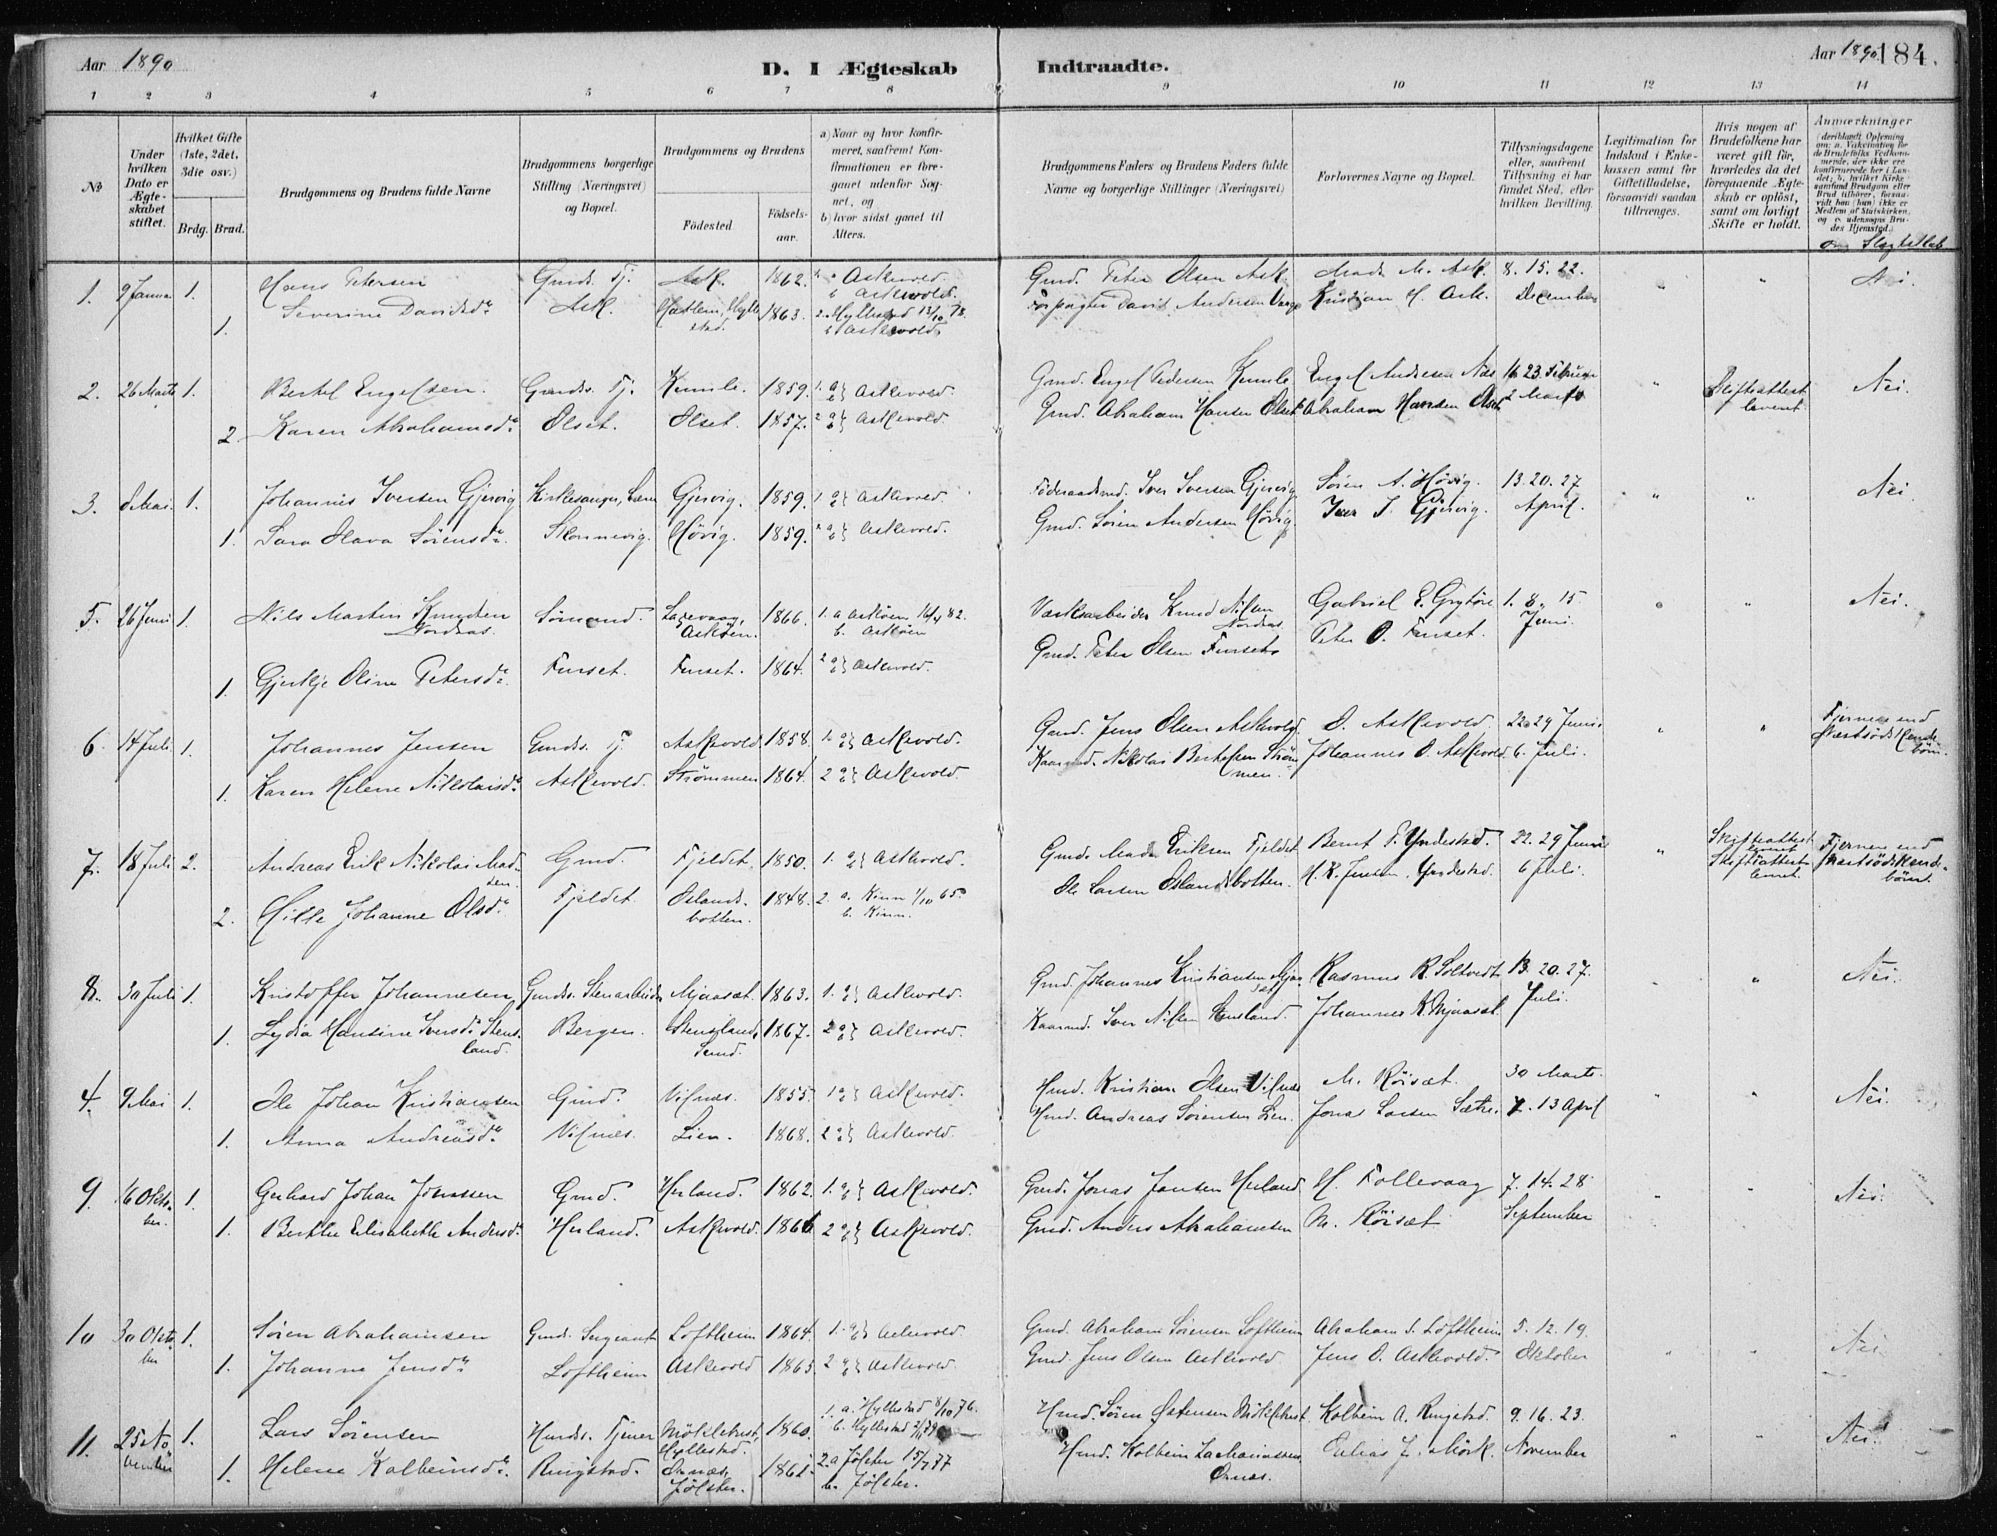 Aar 1890
D. I Ægteskab Indtraadte.
Aar 1890 184.
1 2 3 4 5 6 7 8 9 10 11 12 13 14
№
Under hvilken Dato er Ægteskabet stiftet.
Hvilket Gifte (1ste, 2det, 3die osv.)
Brdg. Brud.
Brudgommens og Brudens fulde Navne
Brudgommens borgerlige Stilling (Næringsvei) og Bopæl.
Brudgommens og Brudens
Fødested
Fødselsaar.
a) Naar og hvor konfirmeret, saafremt Konfirmationen er foregaaet udenfor Sognet, og
b) hvor sidst gaaet til Alters.
Brudgommens Faders og Brudens Faders fulde Navne og borgerlige Stillinger (Næringsvei)
Forlovernes Navne og Bopæl.
Tillysningsdagene eller, saafremt Tillysning ei har fundet Sted, efter hvilken Bevilling.
Legitimation for Indskud i Enkekassen samt for Giftetilladelse, forsaavidt saadan tiltrænges.
Hvis nogen af Brudefolkene har været gift før, hvorledes da det foregaaende Ægteskab er opløst, samt om lovligt Skifte er holdt.
Anmærkninger
om Slægtskab
1. 9 Janua 1. Hans Petersen Gmds. Tj. Ask. 1862. a Askevold. Gmd. Peter Olsen Ask. Mads M. Ask. 8. 15. 22. " " Nei.
b Askevold.
1. Severine Davidsdr Ask. Hyllestad. 1863. 2. Hyllestad 13/10 78 David Andersen Kristian H. Ask. December
b Askevold
2. 26 Marts 1. Bertel Engelsen. Gmds. Tj. Kumle. 1859. 1. a b} Askevold. Gmd. Engel Pedersen Kumle Engel Andresen Næs 16. 23. Februar " Skifteattest leveret. Nei
2 Karen Abrahamsdr Olset. Olset. 1857. 2 a b} Askevold. Gmd. Abraham Hansen Olset. Abraham Hansen Olset 2 Marts
3. 8 Mai. 1. Johannes Iversen Gjervig Kirkesanger, Gjervig. 1859. 1. a b} Askevold. Føderaadsmd. Iver Iversen Gjervig Søren A. Høvig. 13. 20. 27 " " Nei.
1. Sara Olava Sørensdr. Høvig. 1859. 2 a b} Askevold. Gmd. Søren Andersen Høvig. Iver I. Gjervig. April.
5. 26 Juni 1. Nils Martin Knudsen Nordnæs. Sømand. Laxevaag, Askøen. 1866. 1. a Askøen 16/4 82. Knud Nilsen Nordnæs Gabriel E. Grytøre 1. 8. 15 " " Nei.
b. Askøen
1. Gjertje Oline Petersdr. Furset. Furset. 1864. 2 a b} Askevold. Gmd. Peter Olsen Furset Peter O. Furset. Juni.
6. 14 Juli. 1. Johannes Jensen Gmds. Tj. Askevold 1858. 1. a b} Askevold. Gmd. Jens Olsen Askevold. O. Askevold. 22. 29 Juni. " " Fjernere end Næstsødskendebørn.
1. Karen Helene Nikolaisdr Askevold. Strømmen 1864. 2 a b} Askevold. Kaarmd. Nikolai Bertelsen Strømmen. Johannes O. Askevold. 6. Juli.
7. 18 Juli 2. Andreas Erik Nikolai Madsen. Gmd. Fjeldet. 1850. 1. a b} Askevold. Gmd. Mads Eriksen Fjeldet Bernt P. Yndestad. 22. 29 Juni " Skifteattest leveret Fjernere end Næstsødskendebørn.
2. Hille Johanne Olsdr. Fjeldet. Oslandsbotten. 1848. 2. a. Kinn 1/10 65. Ole Larsen Oslandsbotten. H. K. Jensen. Yndestad. 6 Juli. Skifteattest leveret.
b. Kinn.
8. 30 Juli 1. Kristoffer Johannesen Gmds. Stenarbeider Mjaasæt. 1863. 1. a b} Askevold. Gmd. Johannes Kristiansen Mjaasæt. Rasmus R. Soltvedt. 13. 20. 27. " Nei.
1. Lydia Hansine Iversdr Stensland. Bergen. Stensland. 1867. 2 a b} Askevold. Kaarmd. Iver Nilsen Stensland. Johannes K. Mjaasæt. Juli.
4. 9 Mai 1. Ole Johan Kristiansen Gmd. Vilnæs. 1855. 1 a b} Askevold. Hmd. Kristian Olsen Vilnæs M. Röisæt. 30 Marts. " " Nei.
1. Anna Andreasdr Vilnæs. Lien. 1868. 2 a b} Askevold. Hmd. Andreas Sørensen Lien. Jonas Larsen Sætre. 7. 13 April
9. 16 Oktober. 1. Gerhard Johan Jonassen Gmd. Herland. 1862. 1. a b} Askevold. Gmd. Jonas Jansen Herland. H. Follevaag 7. 14. 28 " " Nei.
1. Berthe Elisabeth Andersdr. Herland. Askevold. 1866 2 a b} Askevold. Gmd. Anders Abrahamsen M. Röisæt September
10 30 Oktober 1. Søren Abrahamsen Gmds. Sergeant Loftheim 1864. 1. a b} Askevold. Gmd. Abraham Sørensen Loftheim Abraham S. Loftheim 5. 12. 19. " " Nei.
1. Johanne Jensdr Loftheim Askevold 1865. 2 a b} Askevold. Gmd. Jens Olsen Askevold Jens O. Askevold. Oktober
11. 25 November 1. Lars Sørensen Hmds. Tjener Möklebust, Hyllestad. 1860. 1. a. Hyllestad 8/10 76. Hmd. Søren Østensen Möklebust Kolbein A. Ringstad. 9. 16. 23. " " Nei.
b. Hyllestad
1. Helene Kolbeinsdr. Ringstad. Ornæs, Jølster. 2. a Jølster 15/7 77 Hmd. Kolbein Zachariassen Ornæs. Elias J. Mörk. November
b. Jølster.